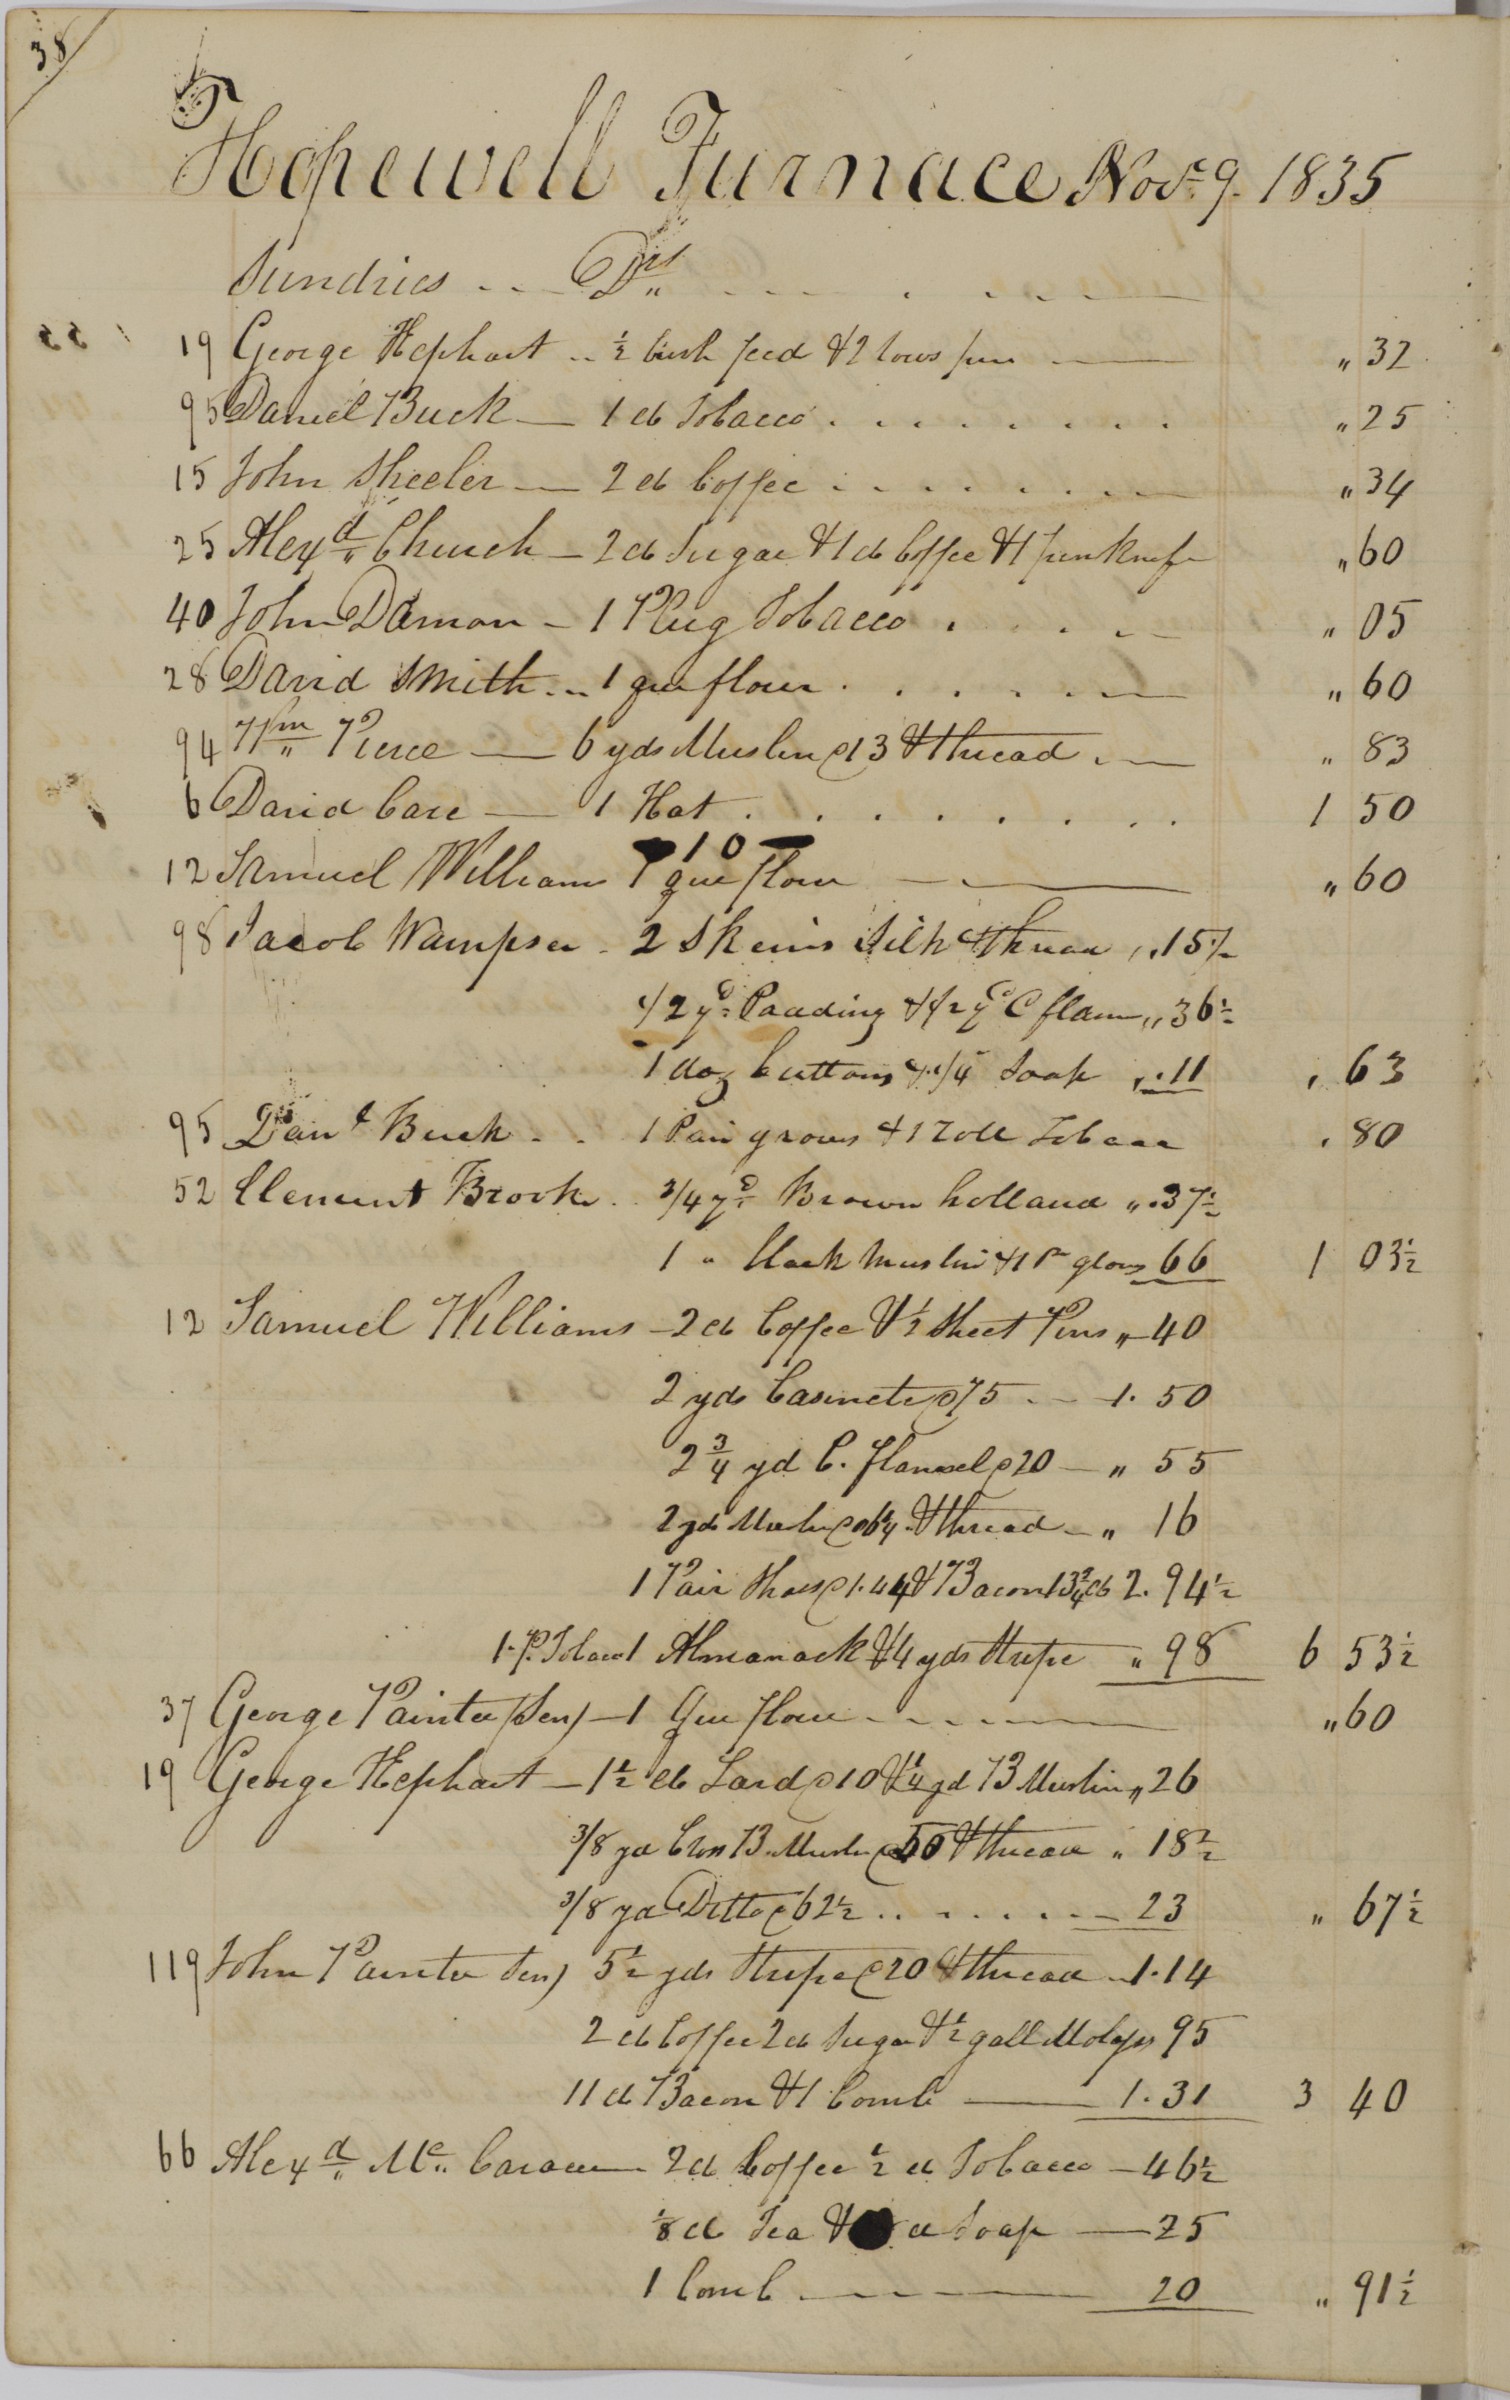 38
Hopewell Furnace Nov.r 9. 1835
Sundries Drs
19 George Hephart ½ bush feed & 2 Cows pen " 32
95 Daniel Buck 1 lb Tobacco " 25
15 John Sheeler 2 lb Coffee " 34
25 Alexd Church 2 lb Sugar & 1 lb Coffee & 1 penknife " 60
40 John Damon 1 Plug Tobacco " 05
28 David Smith 1 qur flour " 60
94 Wm Pierce 6 yds Muslin @ 13 & thread " 83
6 David Care 1 Hat 1 50
— 10 —
12 Samuel Williams 1 qur flour " 60
98 Jacob Wampser 2 Skeins Silk & thread " 15½
1/2 yd Padding & 1/2 yd C flann " 36½
1 doz buttons & 1/4 Soap " 11 " 63
95 Danl Buck 1 Pair & 1 roll Tobacc " 80
52 Clement Brooke 3/4 yd Brown holland " 37½
1 " black muslin & 1 Pr gloves 66 1 03½
12 Samuel Williams 2 lb Coffee & ½ Sheet Pins " 40
2 yds Casinete @ 75 1. 50
2 3/4 yd C. flannel @ 20 " 55
2 yds Muslin @ 6¼ & thread " 16
1 Pair Shoes @ 1.44 & Bacon 13¾ lb 2. 94½
1 P. Tobaco 1 Almanack & 4 yds Stripe " 98 6 53½
37 George Painter (Sen) 1 Qur flour " 60
19 George Hephart 1½ lb Lard @ 10 & ¼ yd B Muslin " 26
3/8 yd B. Muslin @ 50 & thread " 18½
3/8 yd Ditto @ 62½ 23 " 67½
119 John Painter Sen) 5½ yds Stripe @ 20 & thread 1.14
2 lb Coffee 2 lb Sugar & ½ gall Molases 95
11 lb Bacon & 1 Comb 1.31 3 40
66 Alexd Mc 2 lb Coffee ½ lb Tobacco 46½
⅛ lb Tea & lb Soap 25
1 Comb 20 " 91½